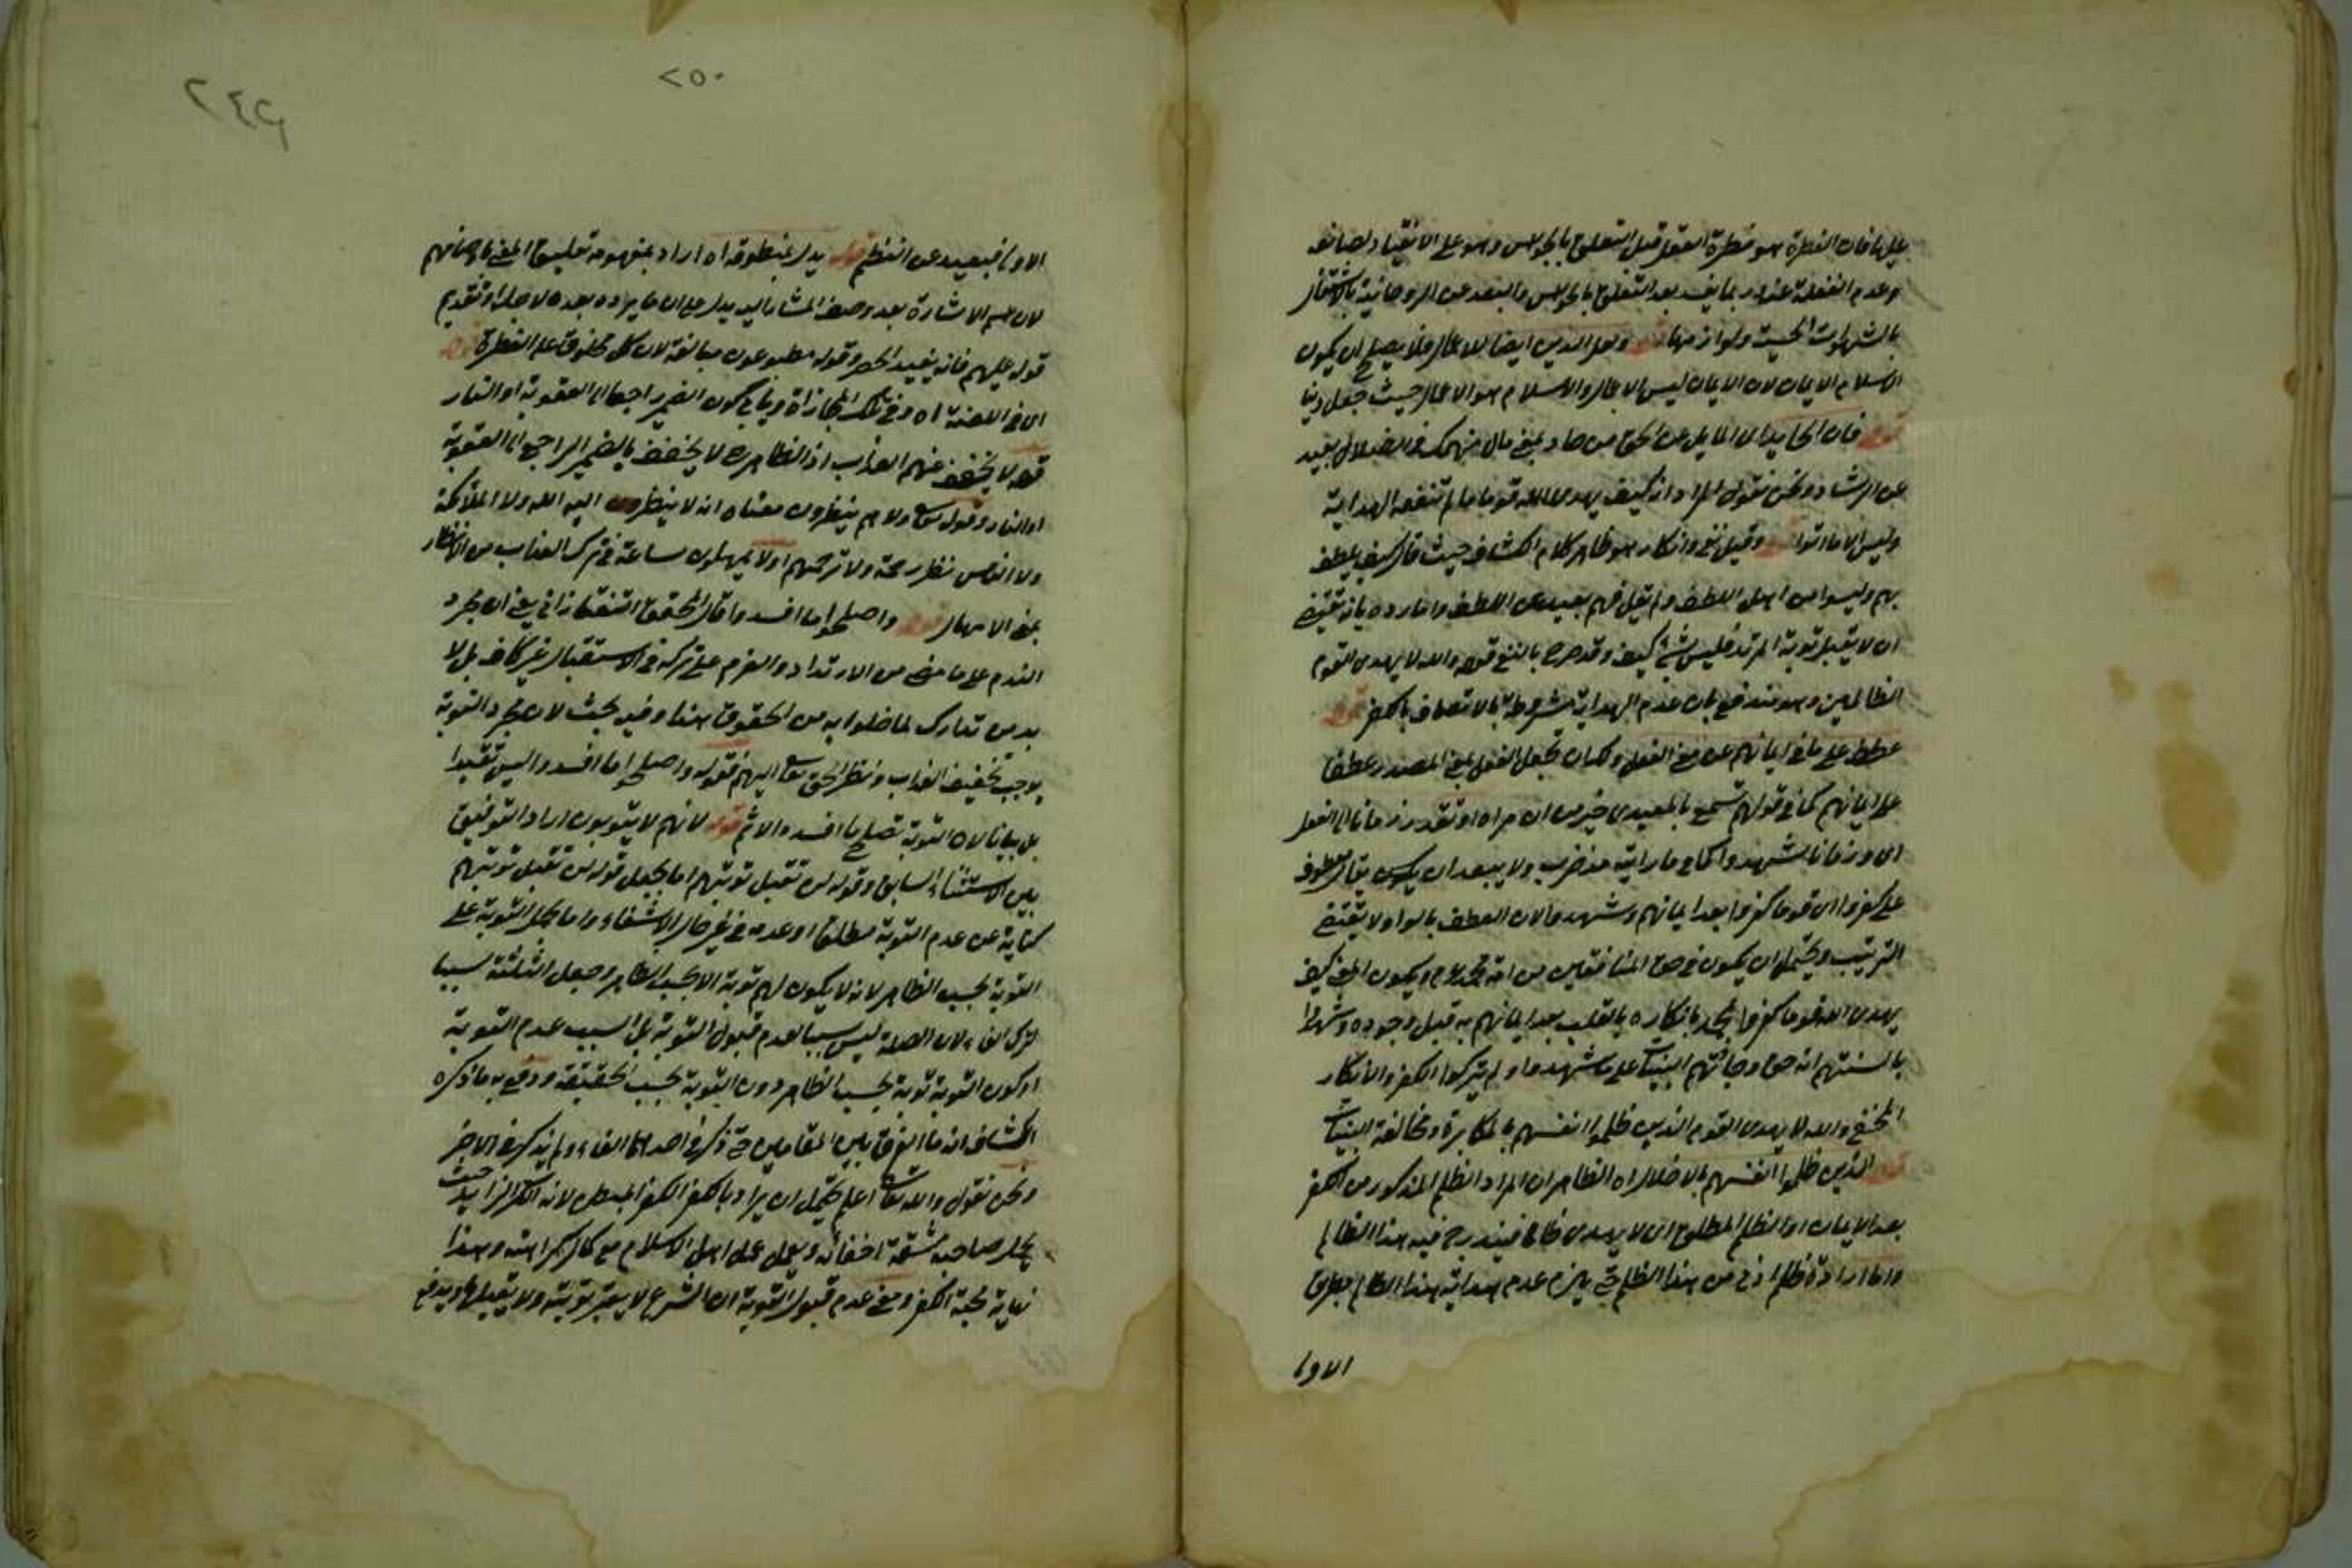 عليها فان الفطرة هو فطرة العقل قبل التعلق بالحواس وهو على الانقياد لصانعه
وعدم الغفلة عنه وربما يفسد بعد التعلق بالحواس والبعد عن الروحانية بالاشتغال
بالشهوات الحسية ولوازمها قوله ولعل الدين ايضا للاعمال فلا يصلح ان يكون
الاسلام الايمان لان الايمان ليس الاعمال والاسلام هو الاعمال حيث جعل دينا
قوله فان الحايد اى المايل عن الحق من حاد بمعنى مال منهمك فى الضلال بعيد
عن الرشاد ونحن نقول المراد انه كيف يهدى الله قوما ما لم تنفعه الهداية
وليس الا ما اتوا قوله وقيل نفى وانكار هو ظاهر كلام الكشاف حيث قال كيف يلطف
بهم وليسوا من اهل اللطف ولم يقل فهم بعيد عن اللطف وانما رده بانه يقتضى
ان لا يقبل توبة المرتد فليس بشئ كيف وقد صرح بالنفى قوله والله لا يهدى القوم
الظالمين وهو مندفع بان عدم الهداية مشروطة بالاتصاف بالكفر قوله
عطف على ما فى ايمانهم من معنى الفعل ولك ان تجعل الفعل بمعنى المصدر عطفا
على ايمانهم كما فى قولهم تسمع بالمعيدى خير من ان تراه او تقدر زمانا الى الفعل
اى وزمانا شهدوا كما فى ما رايته مذ ضرب ولا يبعد ان يقال معطوف
على كفروا اى قوما كفروا بعد ايمانهم وشهدوا لان العطف بالواو لا يقتضى
الترتيب ويحتمل ان يكون فى حق المنافقين من امة محمد ويكون المعنى كيف
يهدى الله قوما كفروا بمحمد بانكاره بالقلب بعد ايمانهم به قبل وجوده وشهدوا
بالسنتهم انه حق وجائتهم البينات على ما شهدوا ولم يتركوا الكفر والانكار
المخفى والله لا يهدى القوم الذين ظلموا انفسهم بالمكابرة ومخالفة البينات
قوله الذين ظلموا انفسهم بالاخلال اه الظاهر ان المراد الظلم المذكور من الكفر
بعد الايمان او الظلم المطلق اى لا يهدى ظالما فيندرج فيه هذا الظالم
واما ارادة ظلم ادنى من هذا الظلم حتى يلزم عدم هداية هذا الظالم بطريق
الاولى
٢٥٠
٢٤٩
الاولى فبعيد عن النظم قوله يدل بمنطوقه اه اراد بمفهومه تعليق المعنى باوصافهم
لان اسم الاشارة بعد وصف المشار اليه يدل على ان ما يراد بعده لاجله او تقديم
قوله عليهم فانه يفيد الحصر وقوله مطبوعون مبالغة لان كل مخلوق على الفطرة قوله
اى فى اللعنة اه وفى تلك المجازاة وينافى كون الضمير راجعا الى العقوبة او النار
قوله لا يخفف عنهم العذاب اذ الظاهر لا يخفف بالضمير الراجع الى العقوبة
او النار وقوله تعالى ولا هم ينظرون معناه انه لا ينظرون اليه الله ولا الملائكة
ولا الناس نظر رحمة ولا ترحمهم او لا يمهلون ساعة فى ترك العذاب من الانظار
بمعنى الامهال قوله واصلحوا ما افسدوا قال المحقق التفتازانى يعنى ان مجرد
الندم على ما مضى من الارتداد والعزم على تركه فى الاستقبال غير كاف بل لا
بد من تدارك لما اخلوا به من الحقوق هذا وفيه بحث لان مجرد التوبة
يوجب تخفيف العذاب ونظر الحق تعالى اليهم فقوله واصلحوا ما افسدوا ليس تقييدا
بل بيانا لان التوبة تصلح ما افسدوا لاثم قوله لانهم لا يتوبون اراد التوفيق
بين الاستثناء السابق وقوله لن تقبل توبتهم اما بجعل قوله لن تقبل توبتهم
كناية عن عدم التوبة مطلقا او عدمه فى غير حال الاشفاء واما بحمل التوبة على
التوبة بحسب الظاهر لانه لا يكون لهم توبة الا بحسب الظاهر وجعل الثلثة سببا
لترك الفاء لان الصلة ليس سببا لعدم قبول التوبة بل السبب عدم التوبة
او كون التوبة توبة بحسب الظاهر دون التوبة بحسب الحقيقة ودفع به ما ذكره
الكشاف انه ما الفرق بين المقامين حتى ذكر فى احدهما الفاء ولم يذكر فى الاخر
ونحن نقول والله تعالى اعلم يحتمل ان يراد بالكفر الكفر المبطن لانه الكفر الزايد حيث
يحمل صاحبه مشقة اخفائه ويعمل عمل اهل الاسلام مع كمال كراهته وهذا
نهاية محبة الكفر ومعنى عدم قبول التوبة ان الشرع لا يعتبر توبته ولا يقبلها ويدفع